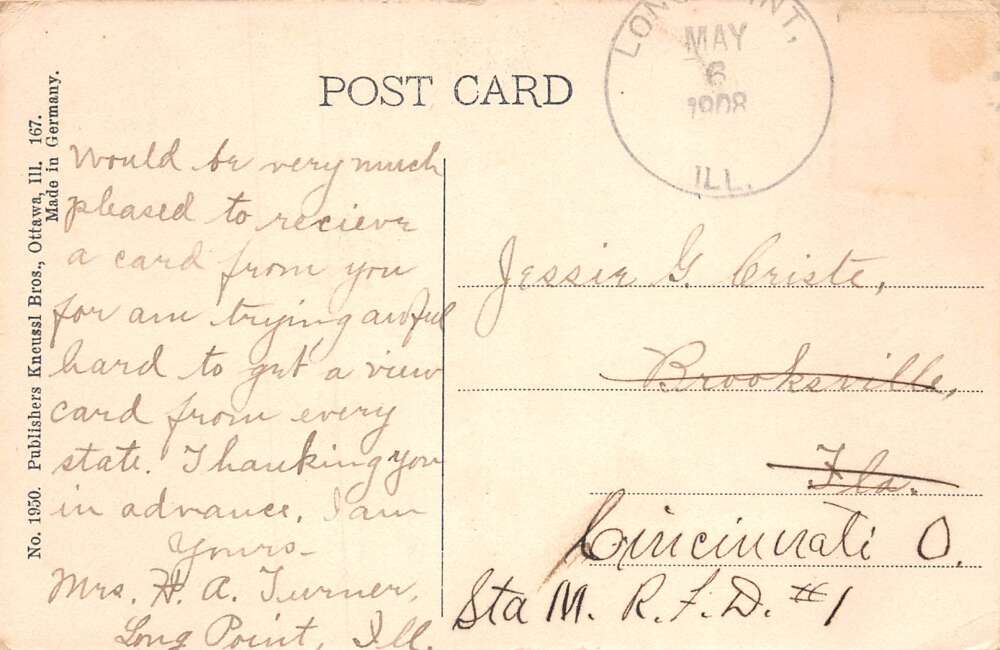 POST CARD
LONG POINT,
MAY
6
1908
ILL.
No. 1950. Publishers Kneussl Bros., Ottawa, Ill. 167.
Made in Germany.
Would be very much
pleased to recieve
a card from you
for am trying awful
hard to get a view
card from every
state. Thanking you
in advance, I am
Yours-
Mrs. H. A. Turner,
Long Point, Ill.
Jessie G. Criste,
Brooksville,
Fla.
Cincinnati O.
Sta M. R. F. D. #1